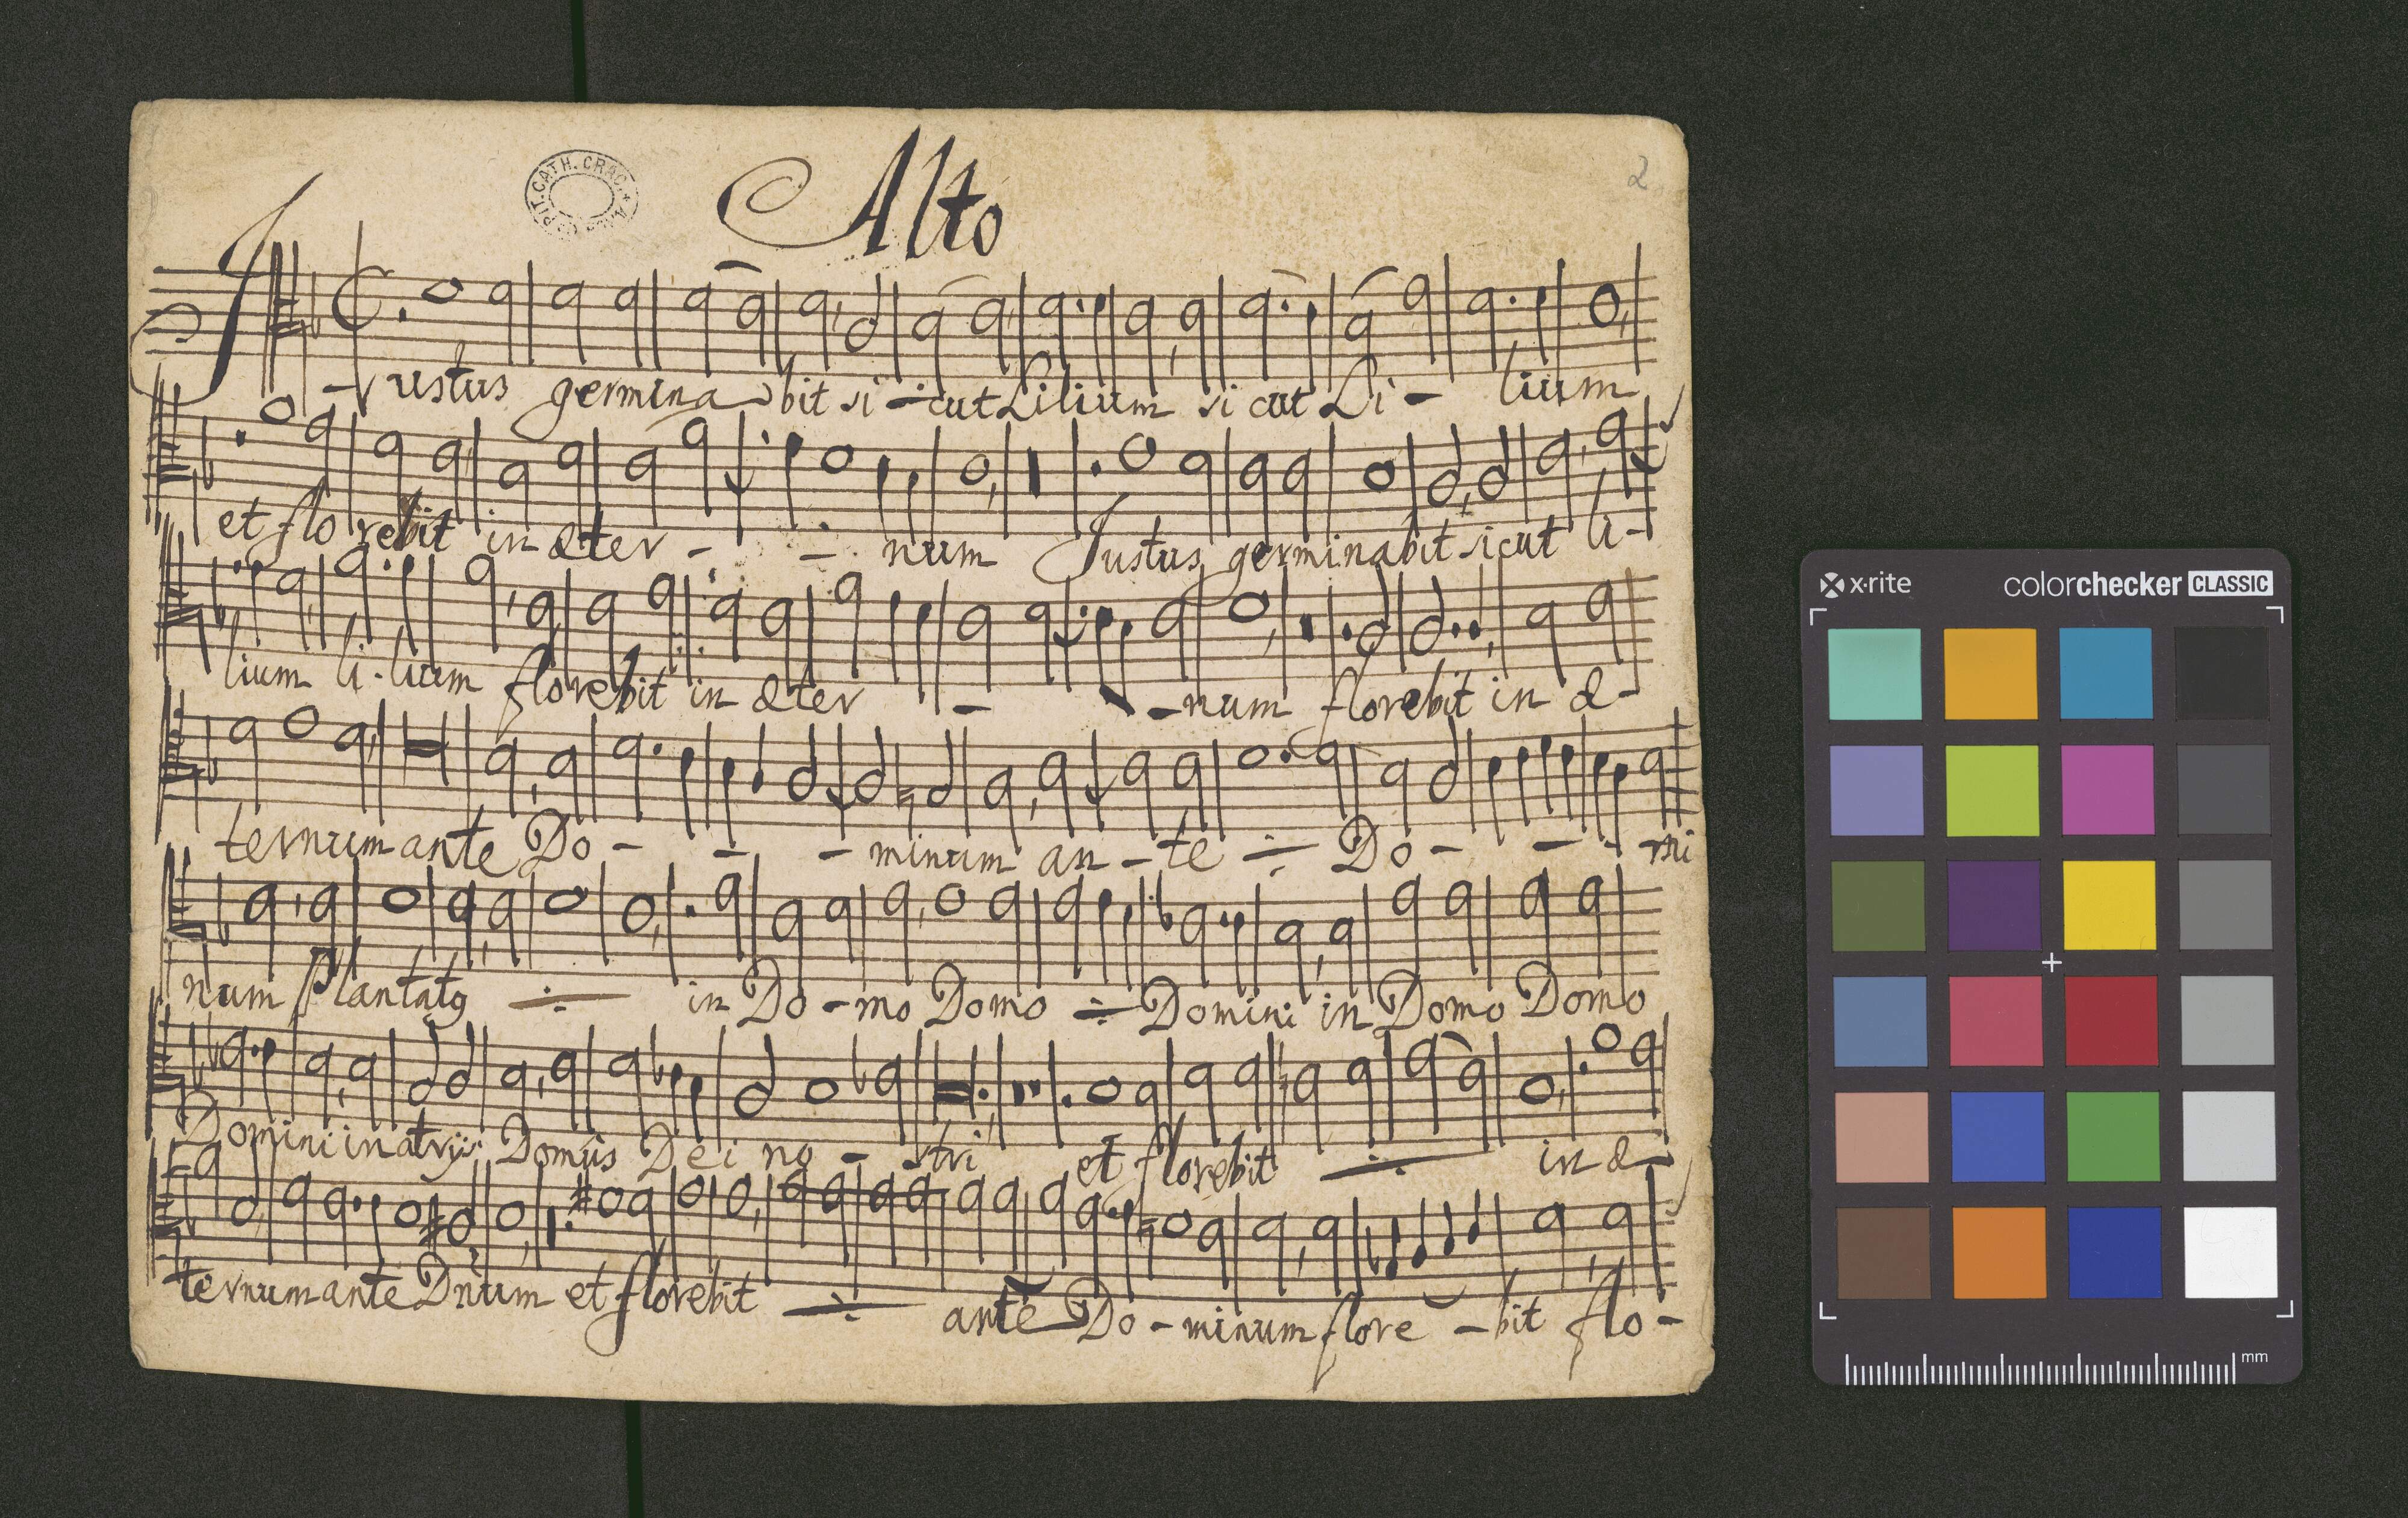 CATH. CRAC.
Alto
2
Iustus germinabit si - cut Lilium si cut Li - lium
et florebit in æter - - num Justus germinabit sicut li-
lium li-lium florebit in æter - - num florebit in æ-
ternum ante Do - - - minum an - te ·/· Do - - - mi
num Plantatg ·/· in Do - mo Domo ·/· Domini in Domo Domo
Domini in atrijs Domus Dei no - stri et florebit ·/· in æ-
ternum ante Dnum et florebit ·/· ante Do - minum flore - bit flo -
x·rite colorchecker CLASSIC
mm